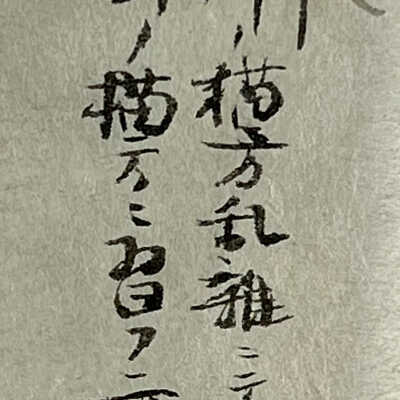 ノ描方乱雑ニテ
ノ描方ニ習フニ